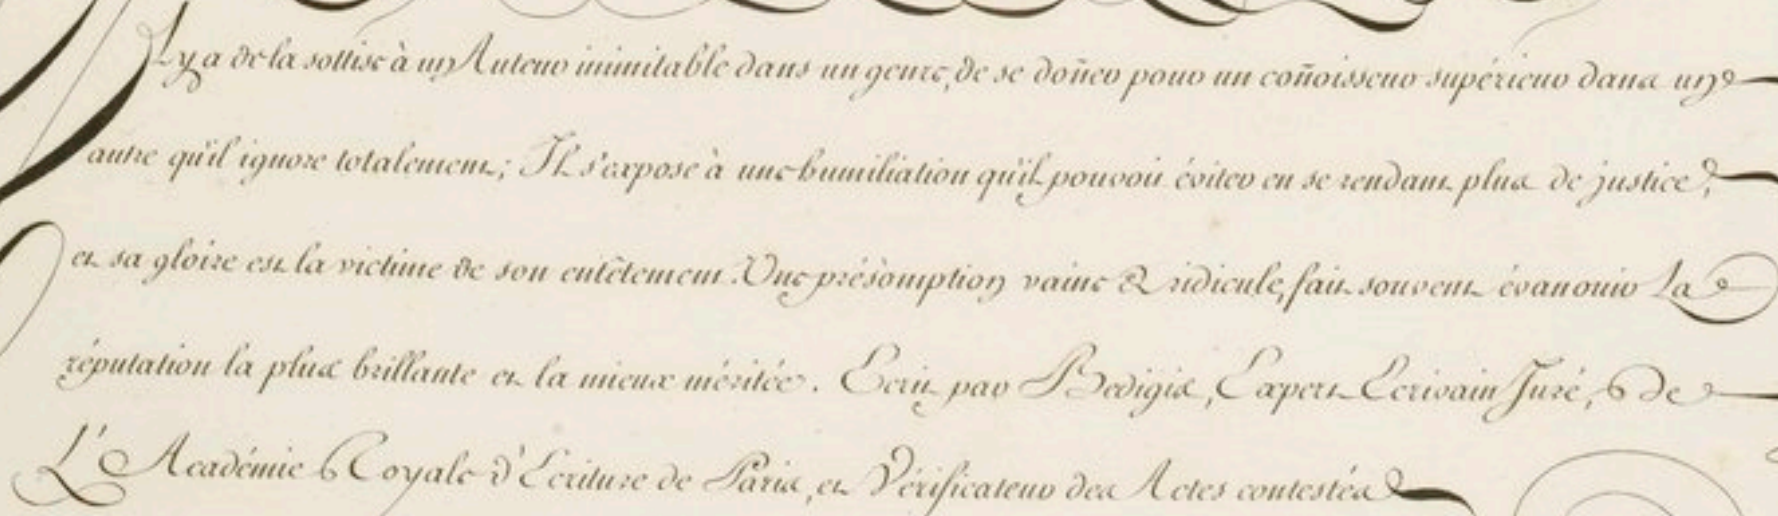 Il y a de la sottise à un Auteur inimitable dans un genre, de se doñer pour un coñoisseur supérieur dans un
autre qu'il ignore totalement; Il s'expose à une humiliation qu'il pouvoit éviter en se rendant plus de justice,
et sa gloire est la victime de son entêtement. Une présomption vaine & ridicule, fait souvent évanouir La
réputation la plus brillante et la mieux méritée. Ecrit par Bedigis, Expert Ecrivain Juré, de
L'Académie Royale d'Ecriture de Paris, et Vérificateur des Actes contestés